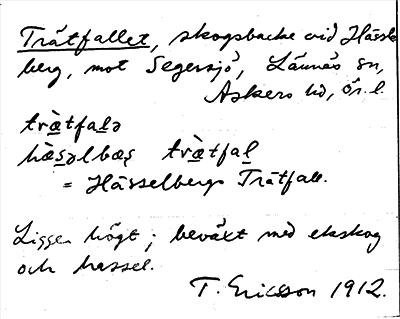 Trätfallet, skogsbacke vid Hässle
berg, mot Segersjö, Lännäs sn,
Askers hd, ör. l.
trätfalə
hæsəlbæs trætfal
= Hässelbergs Trätfall.
Ligger högt; beväxt med ekskog
och hassel.
T. Ericsson 1912.